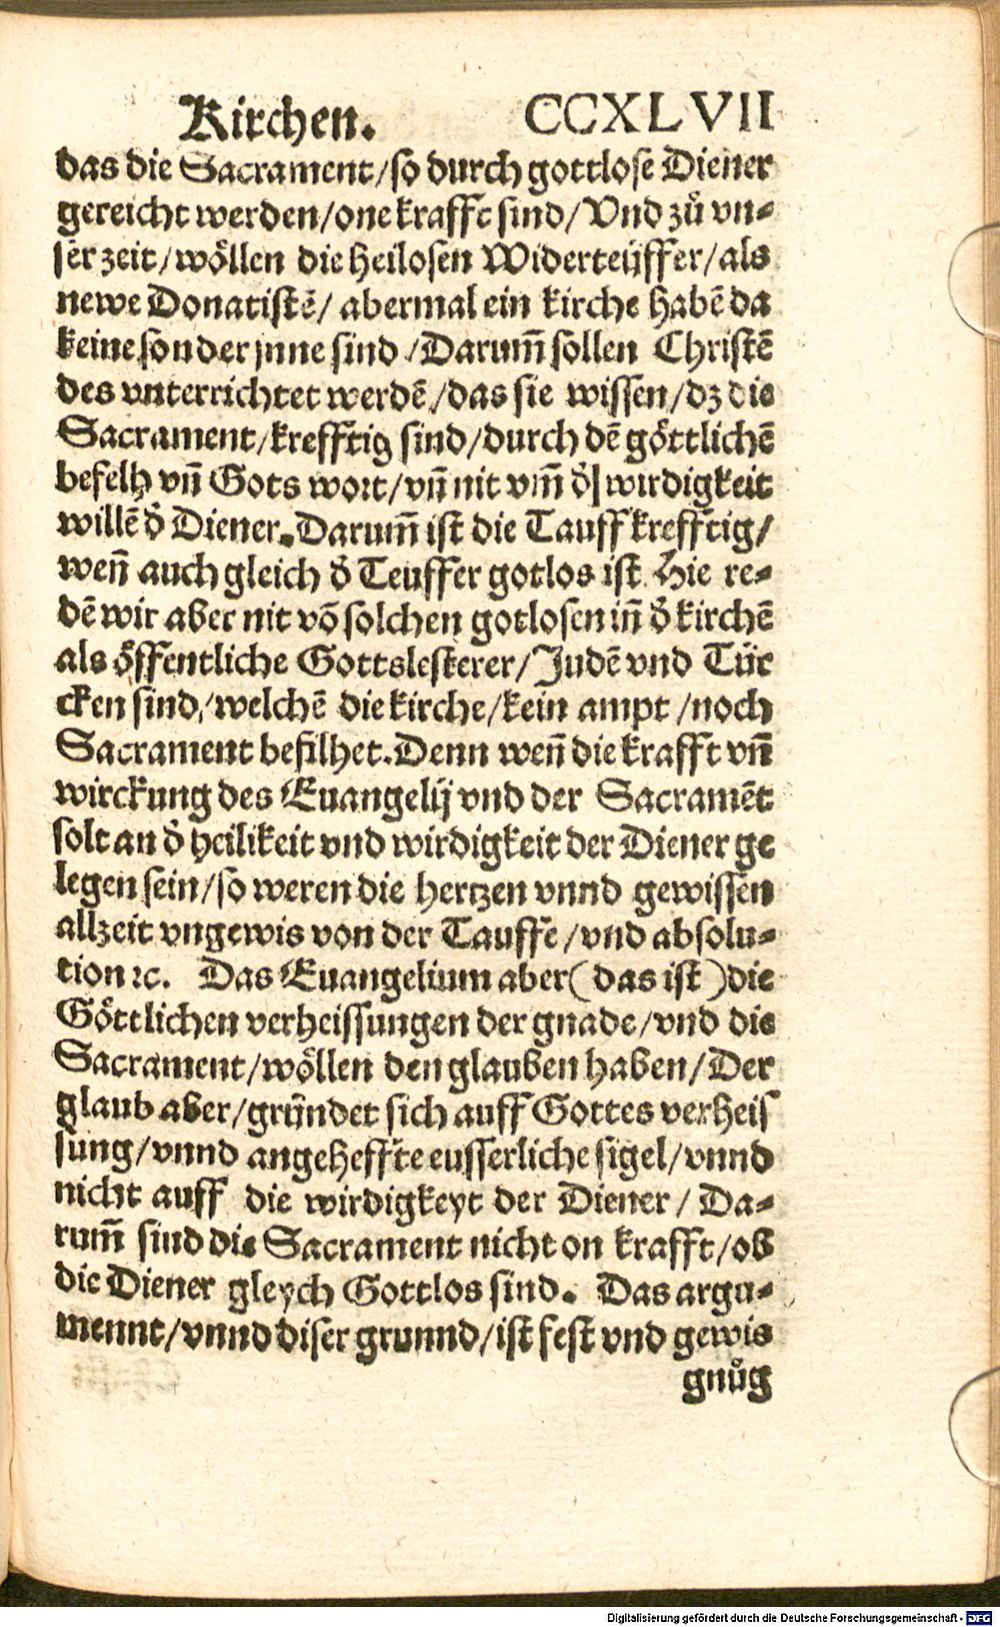 Kirchen. CCXLVII
das die Sacrament/so durch gottlose Diener
gereicht werden/one krafft sind/Vnd zů vn-
ser zeit/wöllen die heilosen Widerteüffer/als
newe Donatistē/ abermal ein kirche habē da
keine sonder jnne sind/Darum̃ sollen Christē
des vnterrichtet werdē/das sie wissen/dz die
Sacrament/krefftig sind/durch dē göttlichē
befelh vñ Gots wort/vñ nit vm̃ d̕ wirdigkeit
willē d̕ Diener. Darum̃ ist die Tauff krefftig/
weñ auch gleich d̕ Teuffer gotlos ist. Hie re-
dē wir aber nit vō solchen gotlosen iñ d̕ kirchē
als öffentliche Gottslesterer/Judē vnd Tür
cken sind/welchē die kirche/kein ampt/noch
Sacrament befilhet. Denn weñ die krafft vñ
wirckung des Euangelij vnd der Sacramēt
solt an d̕ heilikeit vnd wirdigkeit der Diener ge
legen sein/so weren die hertzen vnnd gewissen
allzeit vngewis von der Tauffe/vnd absolu-
tion ꝛc. Das Euangelium aber (das ist) die
Göttlichen verheissungen der gnade/vnd die
Sacrament/wöllen den glauben haben/Der
glaub aber/gründet sich auff Gottes verheis
sung/vnnd angeheffte eusserliche sigel/vnnd
nicht auff die wirdigkeyt der Diener/ Da-
rum̃ sind die Sacrament nicht on krafft/ob
die Diener gleych Gottlos sind. Das argu-
mennt/vnnd diser grunnd/ist fest vnd gewis
gnůg
Digitalisierung gefördert durch die Deutsche Forschungsgemeinschaft - DFG